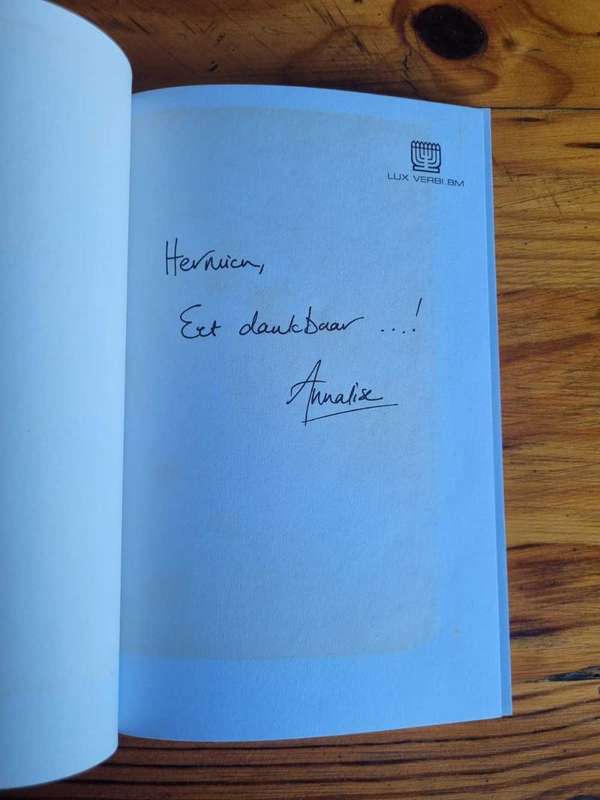 LUX VERBI.BM
Hermien,
Ert dankbaar ....!
Annalise